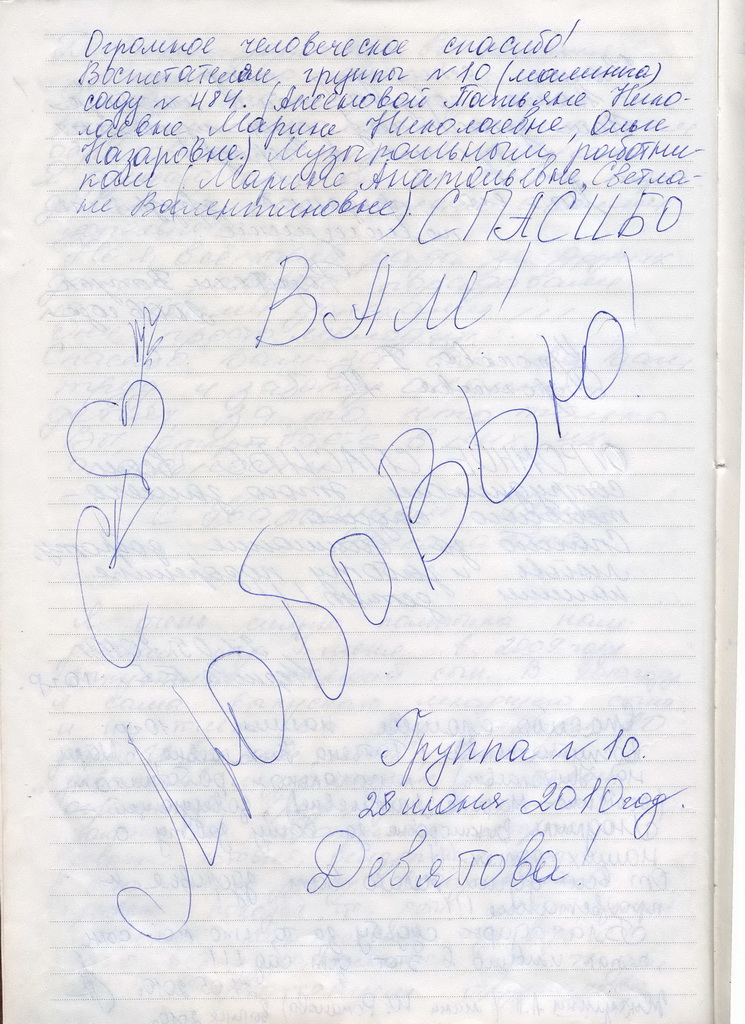 Огромное человеческое спасибо!
Воспитателям группы №10 (малинка)
саду № 484. (Аксёновой Татьяне Нико-
лаевне Марине Николаевне, Ольге
Назаровне.) Музыкальным работни-
кам (Марине Анатольевне, Светла-
не Валентиновне). СПАСИБО
ВАМ!
С
Любовью!
Группа №10.
28 июня 2010 год.
Девятова!